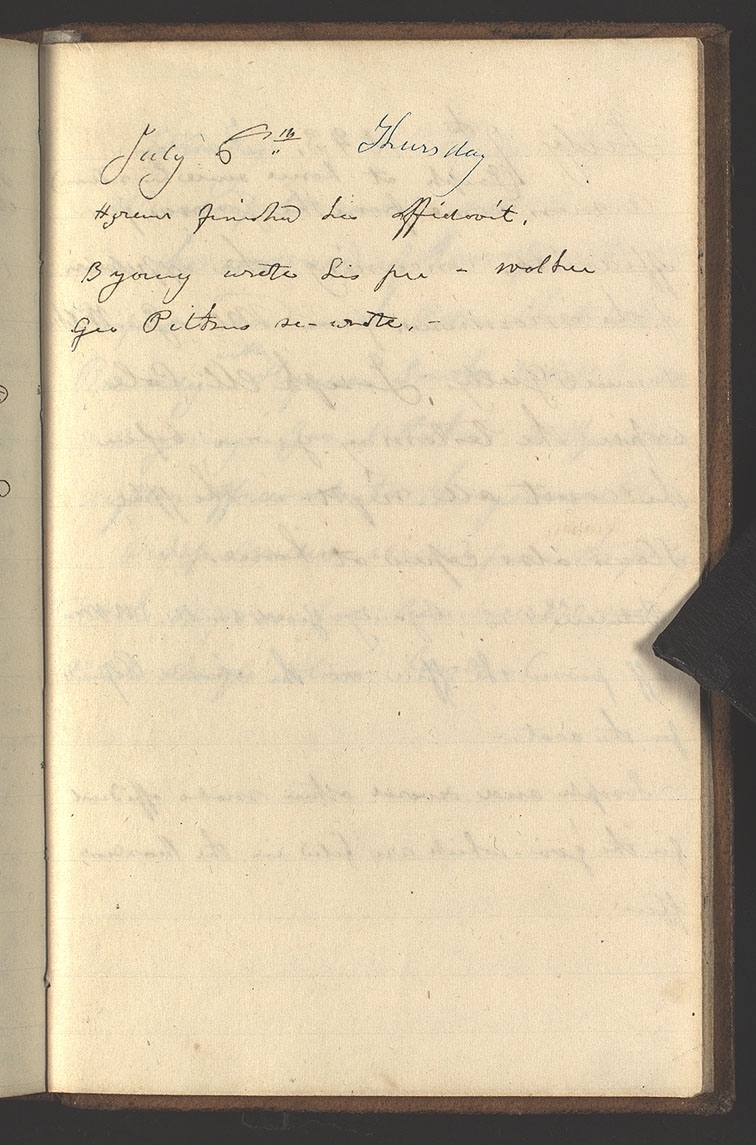 July 6th Thursday
Hyrum finished his affidavit.
B young wrote his –
Geo Pitkins re-wrote. –